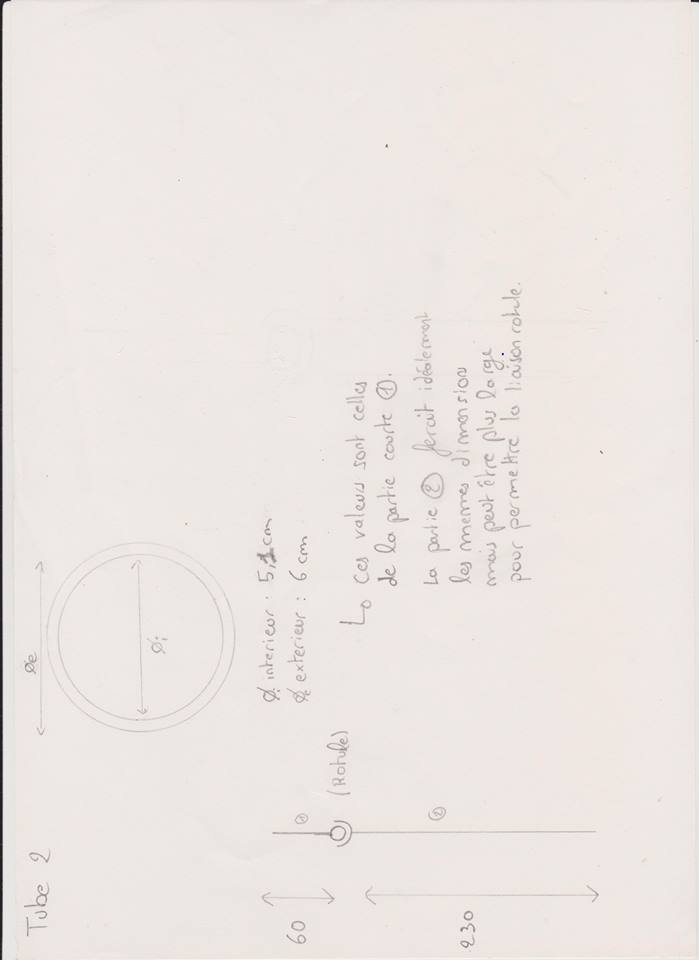 Tube 2
Øe
Øi
Øi interieur : 5,1 cm
Øe exterieur : 6 cm
↳ ces valeurs sont celles
de la partie courte ①.
La partie ② ferait idéalement
les memes dimension
mais peut être plus large
pour permettre la liaison rotule.
60
①
(Rotule)
②
230